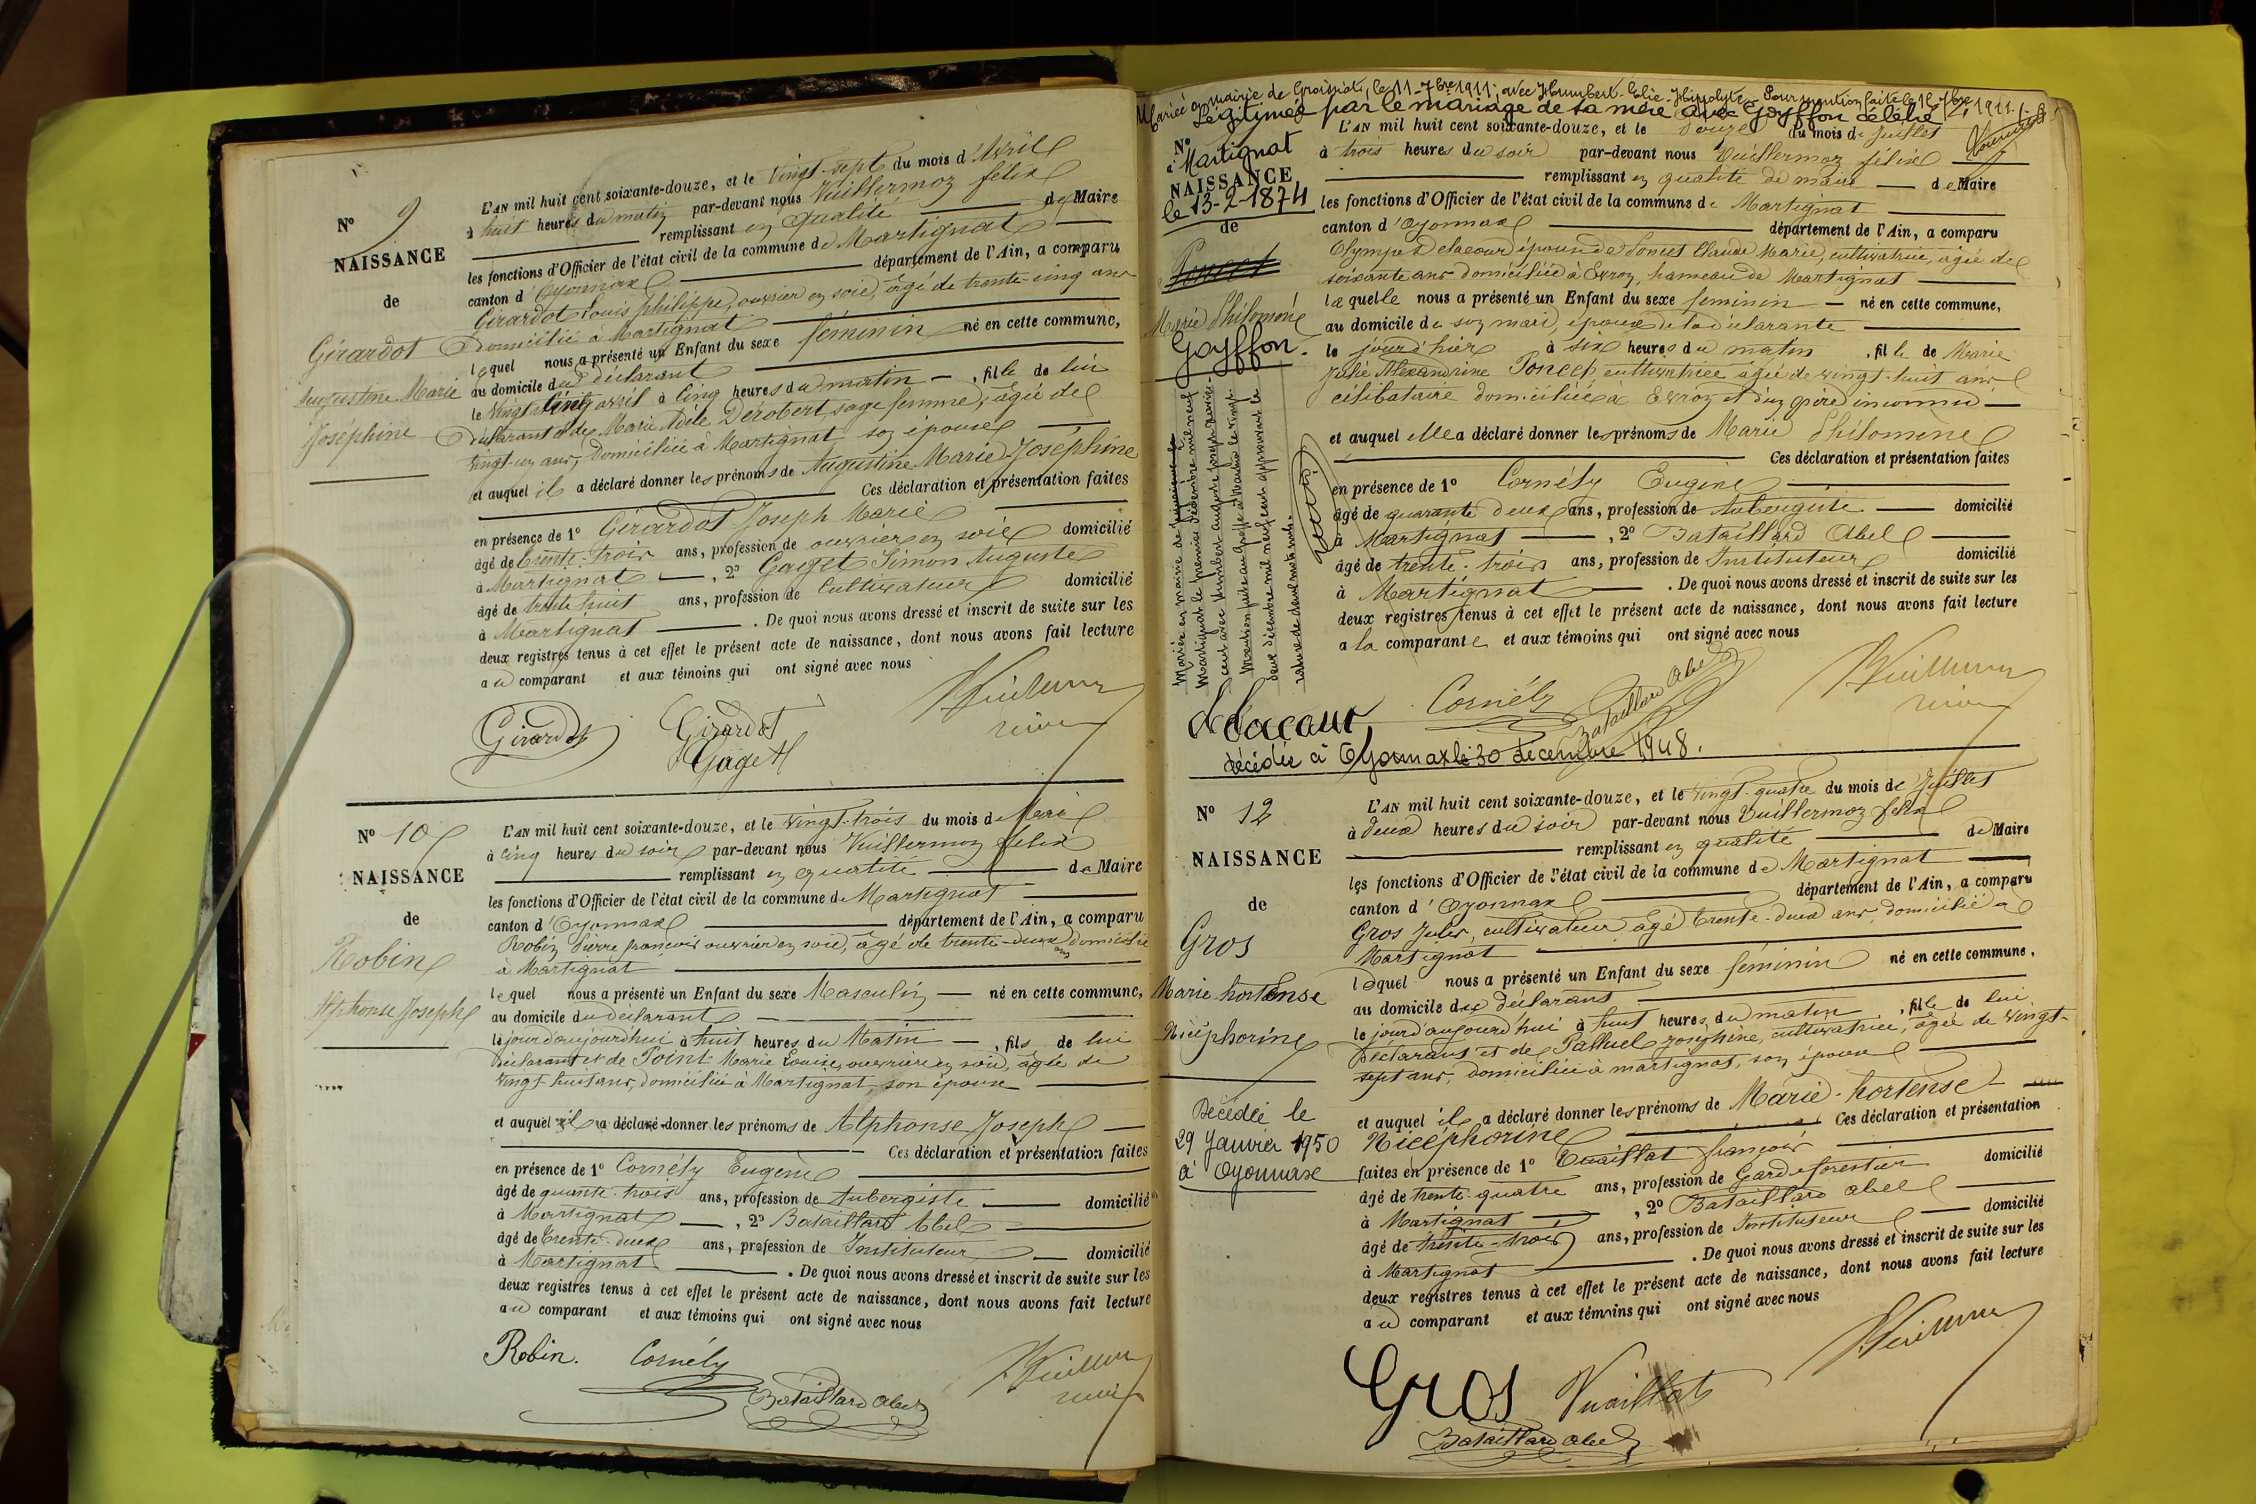 N° 9
NAISSANCE
de
Girardot
Augustine Marie
Joséphine
L'AN mil huit cent soixante-douze, et le vingt-sept du mois d'Avril
à huit heures du matin par-devant nous Vuillermoz félix
remplissant en qualité de Maire
les fonctions d'Officier de l'état civil de la commune de Martignat
canton d'Oyonnax département de l'Ain, a comparu
Girardot Louis philippe, ouvrier en soie, âgé de trente-cinq ans
domicilié à Martignat
lequel nous a présenté un Enfant du sexe féminin né en cette commune,
au domicile du déclarant
le vingt cinq avril à cinq heures du matin, fille de lui
déclarant et de Marie Adèle Dérobert sage femme, âgée de
vingt-un ans, domiciliée à Martignat son épouse
et auquel il a déclaré donner les prénoms de Augustine Marie Joséphine
Ces déclaration et présentation faites
en présence de 1° Girardot Joseph Marie
âgé de trente-trois ans, profession de ouvrier en soie domicilié
à Martignat, 2° Gaget Simon Auguste
âgé de trente huit ans, profession de Cultivateur domicilié
à Martignat. De quoi nous avons dressé et inscrit de suite sur les
deux registres tenus à cet effet le présent acte de naissance, dont nous avons fait lecture
au comparant et aux témoins qui ont signé avec nous
Girardot Girardot
Gaget
N° 10
NAISSANCE
de
Robin
Alphonse Joseph
L'AN mil huit cent soixante-douze, et le vingt-trois du mois de Mai
à cinq heures du soir par-devant nous Vuillermoz félix
remplissant en qualité de Maire
les fonctions d'Officier de l'état civil de la commune de Martignat
canton d'Oyonnax département de l'Ain, a comparu
Robin Pierre françois ouvrier en soie, âgé de trente-deux ans domicilié
à Martignat
lequel nous a présenté un Enfant du sexe Masculin né en cette commune,
au domicile du déclarant
le jour d'aujourd'hui à huit heures du Matin, fils de lui
déclarant et de Point Marie Louise, ouvrière en soie, âgée de
vingt huit ans, domiciliée à Martignat, son épouse
et auquel il a déclaré donner les prénoms de Alphonse Joseph
Ces déclaration et présentation faites
en présence de 1° Cornély Eugène
âgé de quarante-trois ans, profession de Aubergiste domicilié
à Martignat, 2° Bataillard Abel
âgé de trente-deux ans, profession de Instituteur domicilié
à Martignat. De quoi nous avons dressé et inscrit de suite sur les
deux registres tenus à cet effet le présent acte de naissance, dont nous avons fait lecture
au comparant et aux témoins qui ont signé avec nous
Robin. Cornély
Bataillard Abel
Mariée en mairie de Groissiat, le 11 7bre 1911, avec Humbert Elie Hippolyte. Pour mention faite le 12 7bre 1911.
Légitimée par le mariage de sa mère avec Goyffon célébré
N°
à Martignat
NAISSANCE
le 13-2-1874
de
Poncet
Marie Philomène
Goyffon.
L'AN mil huit cent soixante-douze, et le douze du mois de juillet
à trois heures du soir par-devant nous Vuillermoz félix
remplissant en qualité de maire de Maire
les fonctions d'Officier de l'état civil de la commune de Martignat
canton d'Oyonnax département de l'Ain, a comparu
Olympe Delacour épouse de Poncet Claude Marie, cultivatrice, âgée de
soixante ans domiciliée à Evron, hameau de Martignat
laquelle nous a présenté un Enfant du sexe féminin né en cette commune,
au domicile de son mari, époux de la déclarante
le jour d'hier à six heures du matin, fille de Marie
Julie Alexandrine Poncet, cultivatrice âgée de vingt-huit ans
célibataire domiciliée à Evron et d'un père inconnu
et auquel elle a déclaré donner les prénoms de Marie Philomène
Ces déclaration et présentation faites
en présence de 1° Cornély Eugène
âgé de quarante deux ans, profession de Aubergiste domicilié
à Martignat, 2° Bataillard Abel
âgé de trente-trois ans, profession de Instituteur domicilié
à Martignat. De quoi nous avons dressé et inscrit de suite sur les
deux registres tenus à cet effet le présent acte de naissance, dont nous avons fait lecture
a la comparante et aux témoins qui ont signé avec nous
Cornély
Bataillard Abel
décédée à Oyonnax le 30 décembre 1948.
N° 12
NAISSANCE
de
Gros
Marie hortense
Nicéphorine
Décédée le
29 Janvier 1950
à Oyonnax
L'AN mil huit cent soixante-douze, et le vingt-quatre du mois de juillet
à deux heures du soir par-devant nous Vuillermoz félix
remplissant en qualité de Maire
les fonctions d'Officier de l'état civil de la commune de Martignat
canton d'Oyonnax département de l'Ain, a comparu
Gros Jules, cultivateur âgé trente-deux ans, domicilié à
Martignat
lequel nous a présenté un Enfant du sexe féminin né en cette commune,
au domicile du déclarant
le jour d'aujourd'hui à huit heures du matin, fille de lui
déclarant et de Palluel Joséphine, cultivatrice, âgée de vingt-
sept ans, domiciliée à martignat, son épouse
et auquel il a déclaré donner les prénoms de Marie-hortense
Nicéphorine Ces déclaration et présentation
faites en présence de 1° Vuaillat françois
âgé de trente-quatre ans, profession de Garde forestier domicilié
à Martignat, 2° Bataillard Abel
âgé de trente-trois ans, profession de Instituteur domicilié
à Martignat. De quoi nous avons dressé et inscrit de suite sur les
deux registres tenus à cet effet le présent acte de naissance, dont nous avons fait lecture
au comparant et aux témoins qui ont signé avec nous
Gros Vuaillat
Bataillard Abel